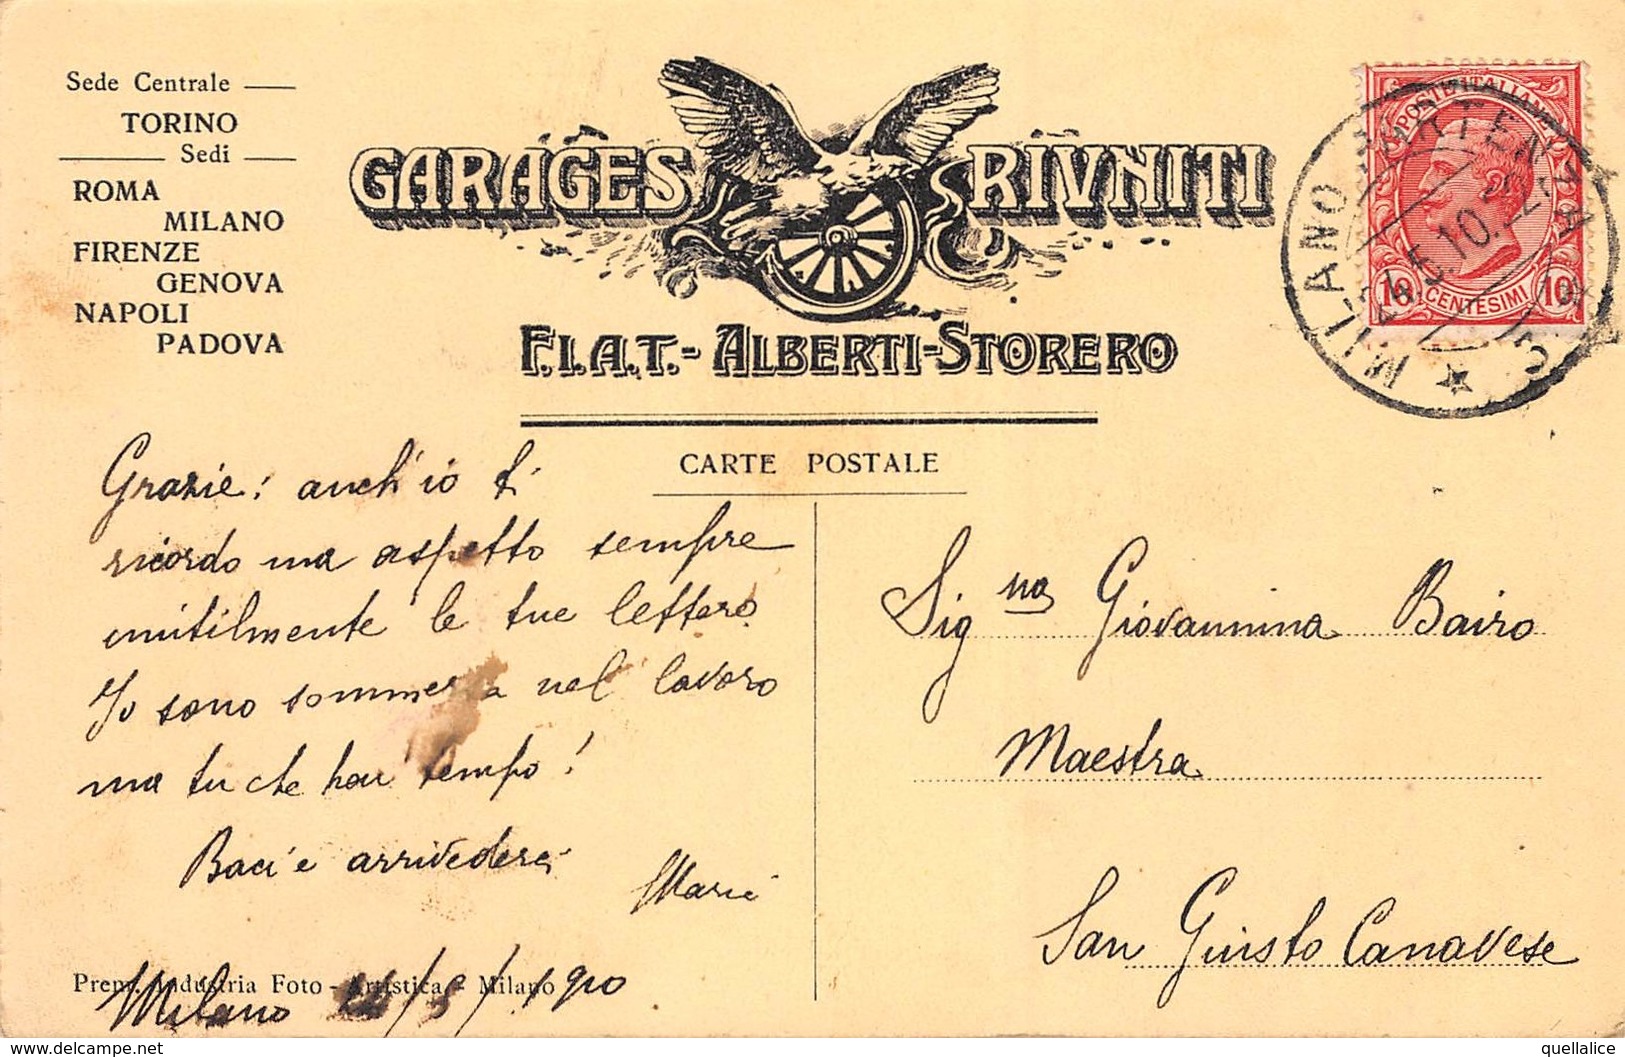 Sede Centrale
TORINO
Sedi
ROMA
MILANO
FIRENZE
GENOVA
NAPOLI
PADOVA
GARAGES RIVNITI
F.I.A.T.-ALBERTI-STORERO
POSTE ITALIANE
10 CENTESIMI 10
MILANO
24.5.10
CARTE POSTALE
Grazie! anch'io ti
ricordo ma aspetto sempre
inutilmente le tue lettere
Io sono sommersa nel lavoro
ma tu che hai tempo!
Baci e arrivederci
Marie
Milano 24/5/1910
Sig.na Giovannina Bairo
Maestra
San Giusto Canavese
Prem. Industria Foto - Artistica - Milano
www.delcampe.net
quellalice